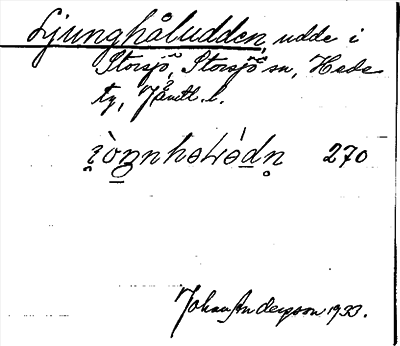 Ljunghåludden, udde i
Storsjö, Storsjö sn, Hede
tg, Jämtl. l.
270
Johan Andersson 1933.